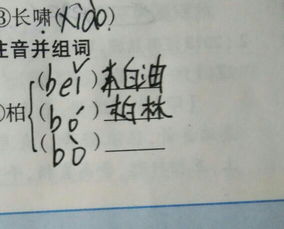 ③长啸(xiào)
注音并组词
柏{(běi)柏油
(bó)柏林
(bò)______